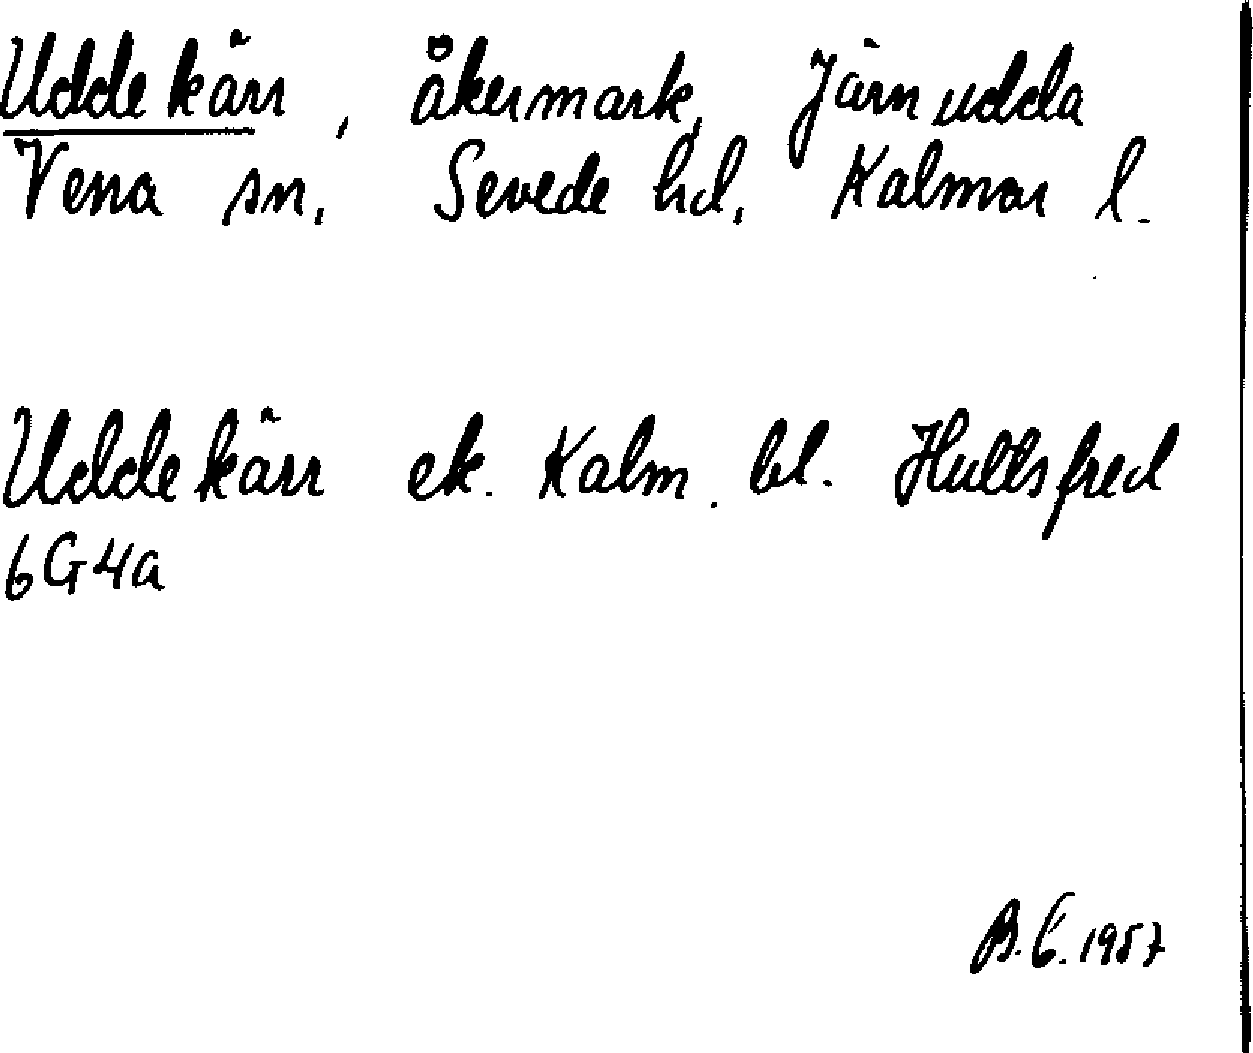 Uddekärr, åkermark, Järnudda
Vena sn. Sevede hd. Kalmar l.
Uddekärr ek. Kalm. bl. Hultsfred
6G4a
B.E. 1957